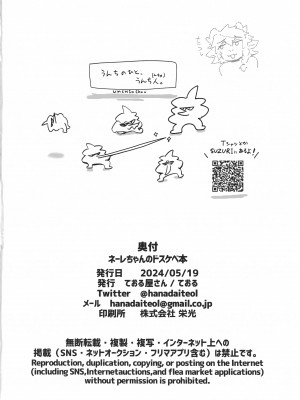 うんちのひと、
うんち人。
Tシャツとか
SUZURIにあるよ!
奥付
ネーレちゃんのドスケベ本
発行日 2024/05/19
発行 ておる屋さん / ておる
Twitter @hanadaiteol
メール hanadaiteol@gmail.co.jp
印刷所 株式会社 栄光
無断転載・複製・複写・インターネット上への
掲載(SNS・ネットオークション・フリマアプリ含む)は禁止です。
Reproduction, duplication, copying, or posting on the Internet
(including SNS,Internetauctions,and flea market applications)
without permission is prohibited.